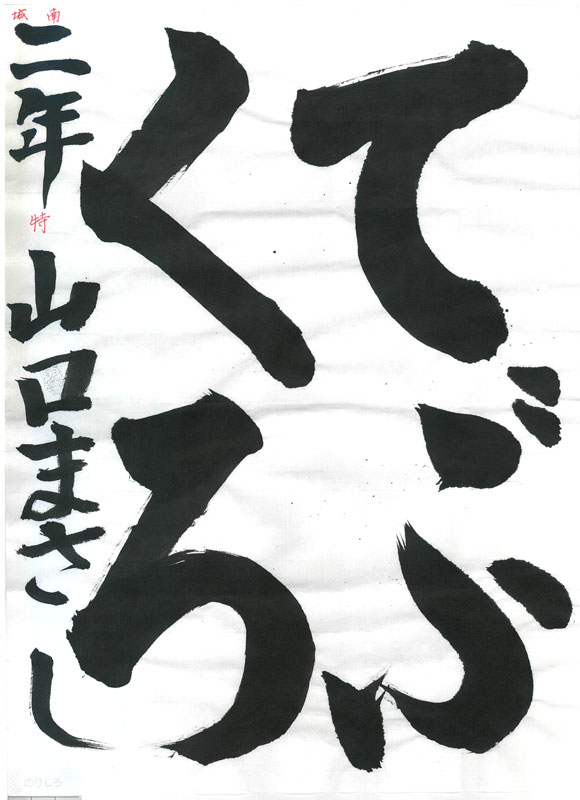 てぶ
くろ
南城
二年 特 山口まさし
のりしろ